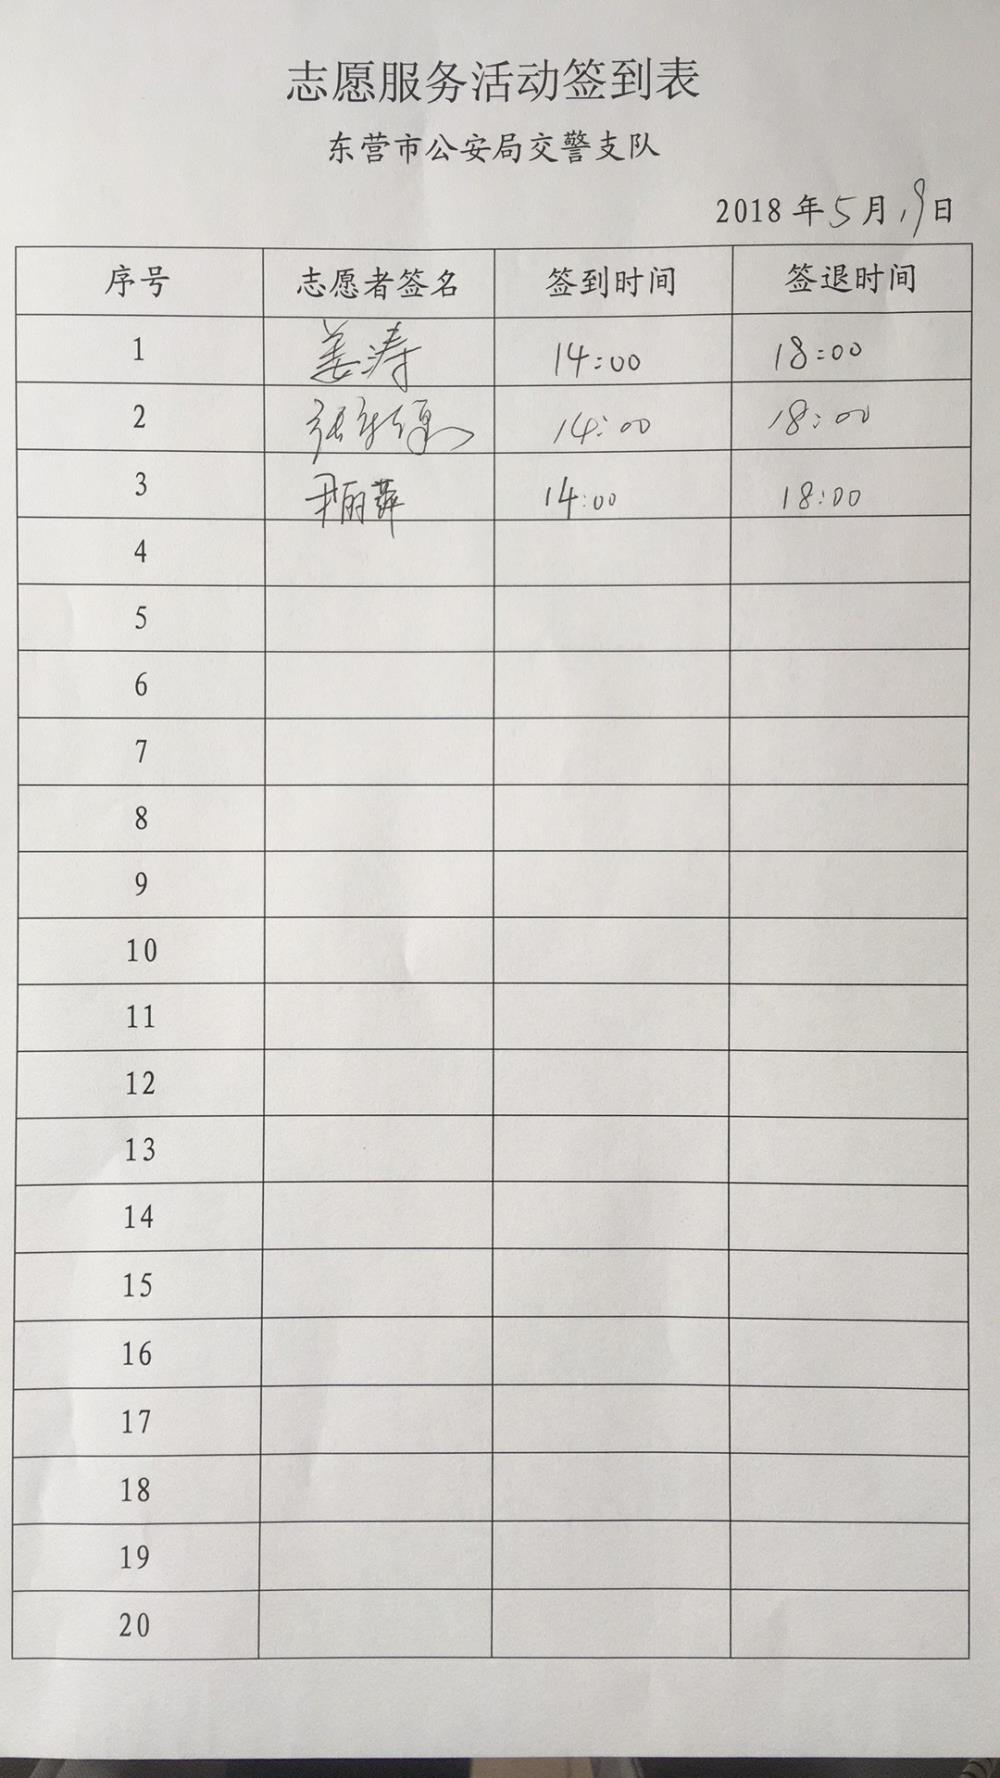 志愿服务活动签到表
东营市公安局交警支队
2018 年 5 月 19 日
序号 志愿者签名 签到时间 签退时间
1 姜涛 14:00 18:00
2 张 14:00 18:00
3 尹丽萍 14:00 18:00
4
5
6
7
8
9
10
11
12
13
14
15
16
17
18
19
20